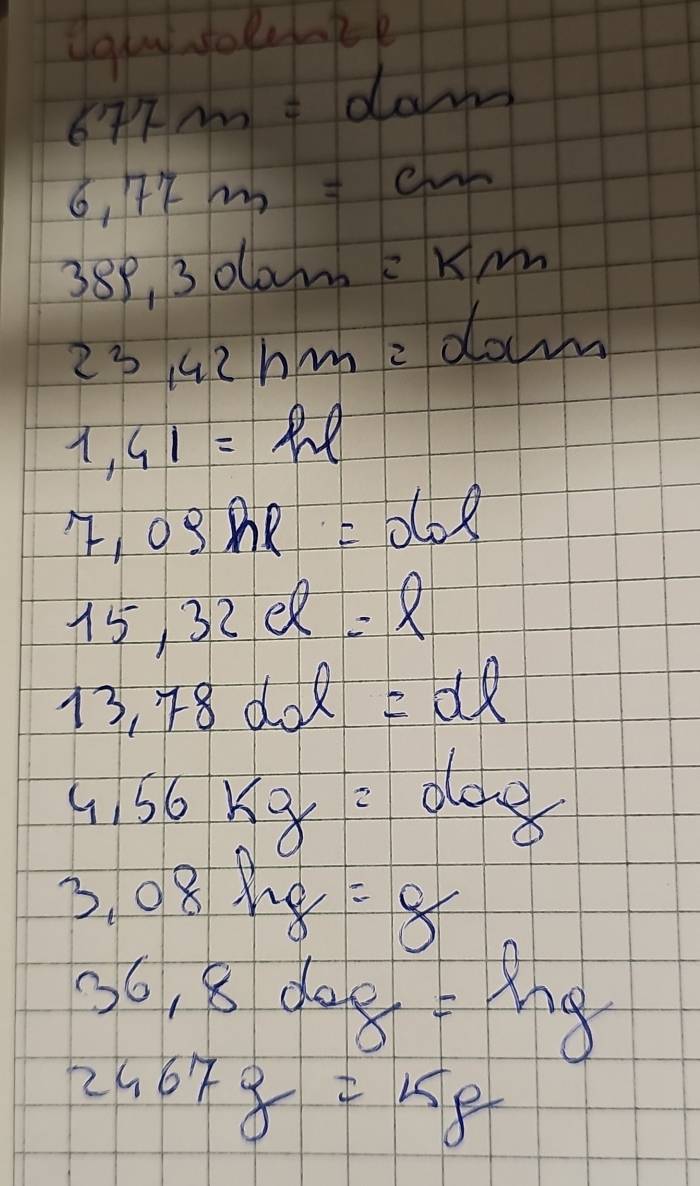 Equivalenze
677 m = dam
6,77 m = cm
389,3 dam = Km
23,42 hm = dam
1,41 = hl
7,09 hl = dal
15,32 cl = l
13,78 dal = dl
4,56 Kg = dag
3,08 hg = g
36,8 dag = hg
2467 g = Kg